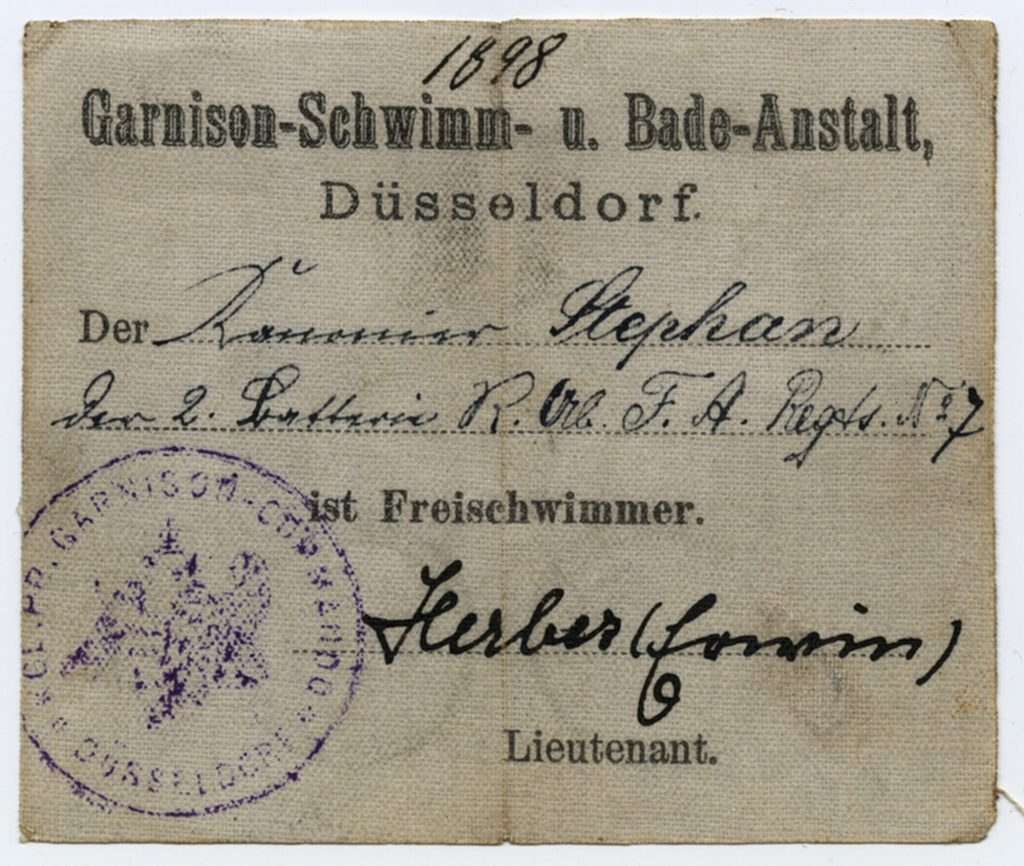 1898
Garnison-Schwimm- u. Bade-Anstalt,
Düsseldorf.
Der Kanonier Stephan
der 2. Batterie R. Arb. F. A. Regts. No. 7
ist Freischwimmer.
Herbes (Erwin)
Lieutenant.
KGL. PR. GARNISON-COMMANDO
DÜSSELDORF